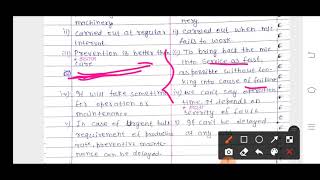 machinery
nery.
ii) carried out at regular
interval
ii) carried out when m/c
fails to work
iii) Prevention is better than
cure
iii) To bring back the m/c
into service as fast
as possible without loo-
king into cause of failure
iv) It will take sometime
for operation or
maintenance
iv) We can't say
time. It depends on
severity of fault
v) In case of urgent bulk
requirement of production
, preventive mainte-
nance can be delayed.
v) It can't be delayed
at any